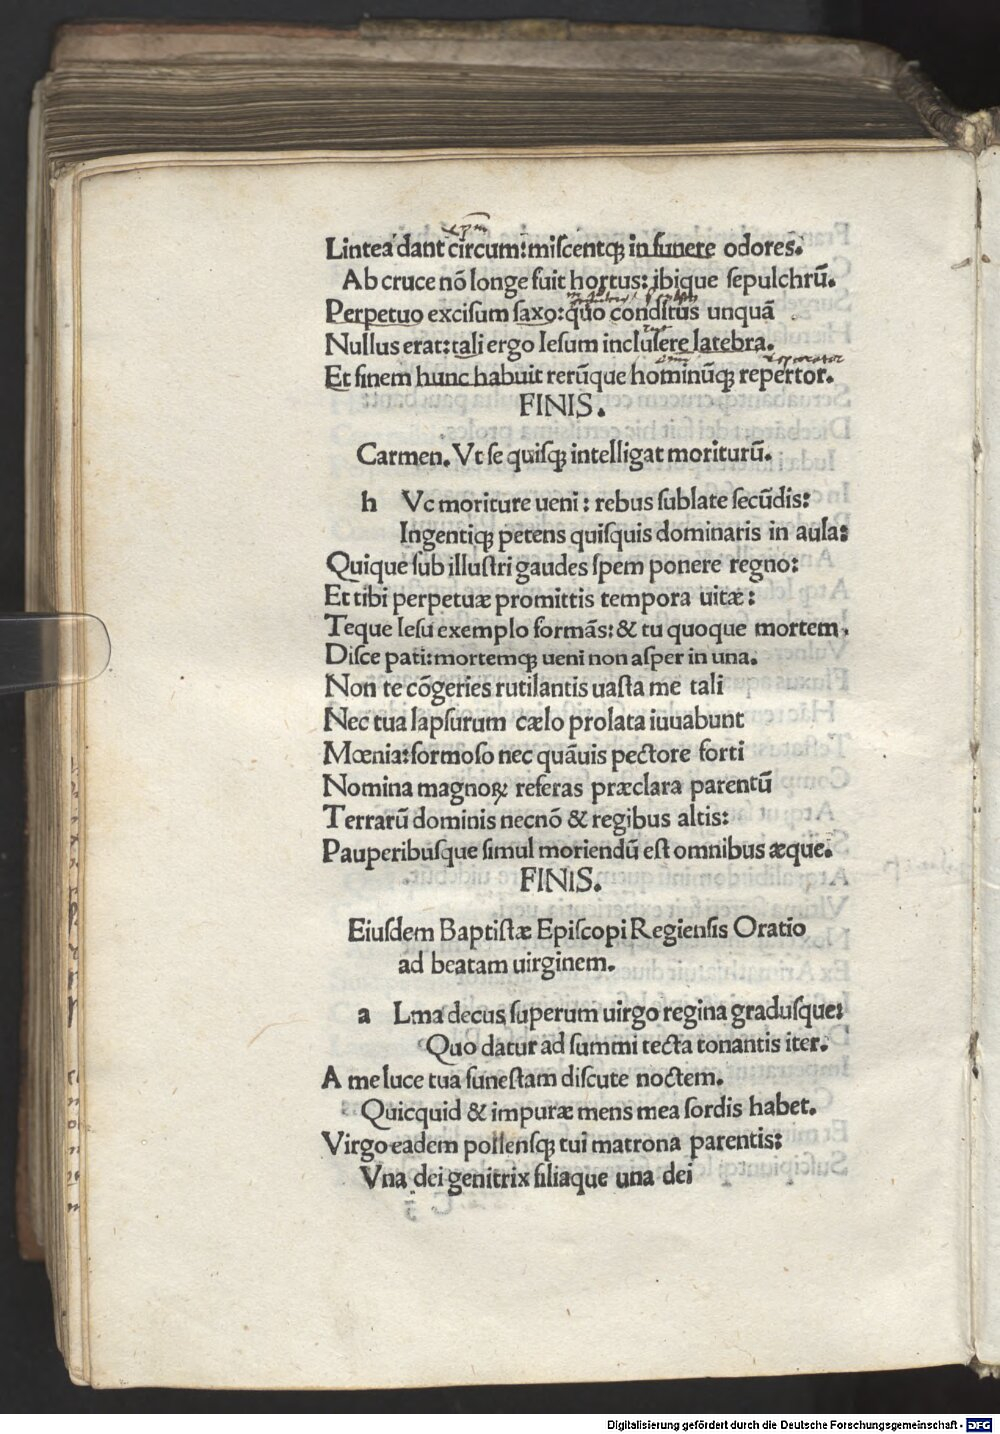 Lintea dant circum: miſcentqꝫ in funere odores.
Ab cruce nō longe fuit hortus: ibique ſepulchrū.
Perpetuo exciſum ſaxo: quo conditus unquā
Nullus erat: tali ergo Ieſum incluſere latebra.
Et finem hunc habuit rerūque hominūqꝫ repertor.
FINIS.
Carmen. Vt ſe quiſqꝫ intelligat moriturū.
h Vc moriture ueni: rebus ſublate ſecūdis:
Ingentiqꝫ petens quiſquis dominaris in aula:
Quique ſub illuſtri gaudes ſpem ponere regno:
Et tibi perpetuæ promittis tempora uitæ:
Teque Ieſu exemplo formās: & tu quoque mortem.
Diſce pati: mortemqꝫ ueni non aſper in una.
Non te cōgeries rutilantis uaſta me tali
Nec tua lapſurum cælo prolata iuuabunt
Mœnia: formoſo nec quāuis pectore forti
Nomina magnoꝝ referas præclara parentū
Terrarū dominis necnō & regibus altis:
Pauperibuſque ſimul moriendū eſt omnibus æque.
FINIS.
Eiuſdem Baptiſtæ Epiſcopi Regienſis Oratio
ad beatam uirginem.
a Lma decus ſuperum uirgo regina graduſque:
Quo datur ad ſummi tecta tonantis iter.
A me luce tua funeſtam diſcute noctem.
Quicquid & impuræ mens mea ſordis habet.
Virgo eadem pollenſqꝫ tui matrona parentis:
Vna dei genitrix filiaque una dei
Digitalisierung gefördert durch die Deutsche Forschungsgemeinschaft - DFG